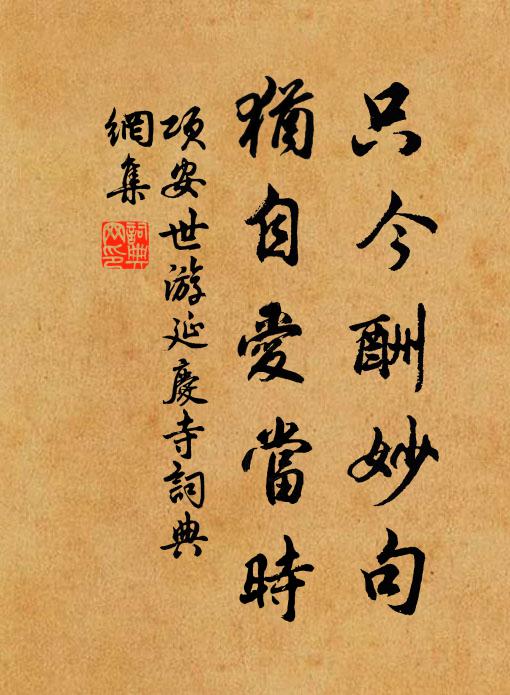 只今酬妙句
猶自愛當時
項安世游延慶寺詞典
網集
詞典
网印